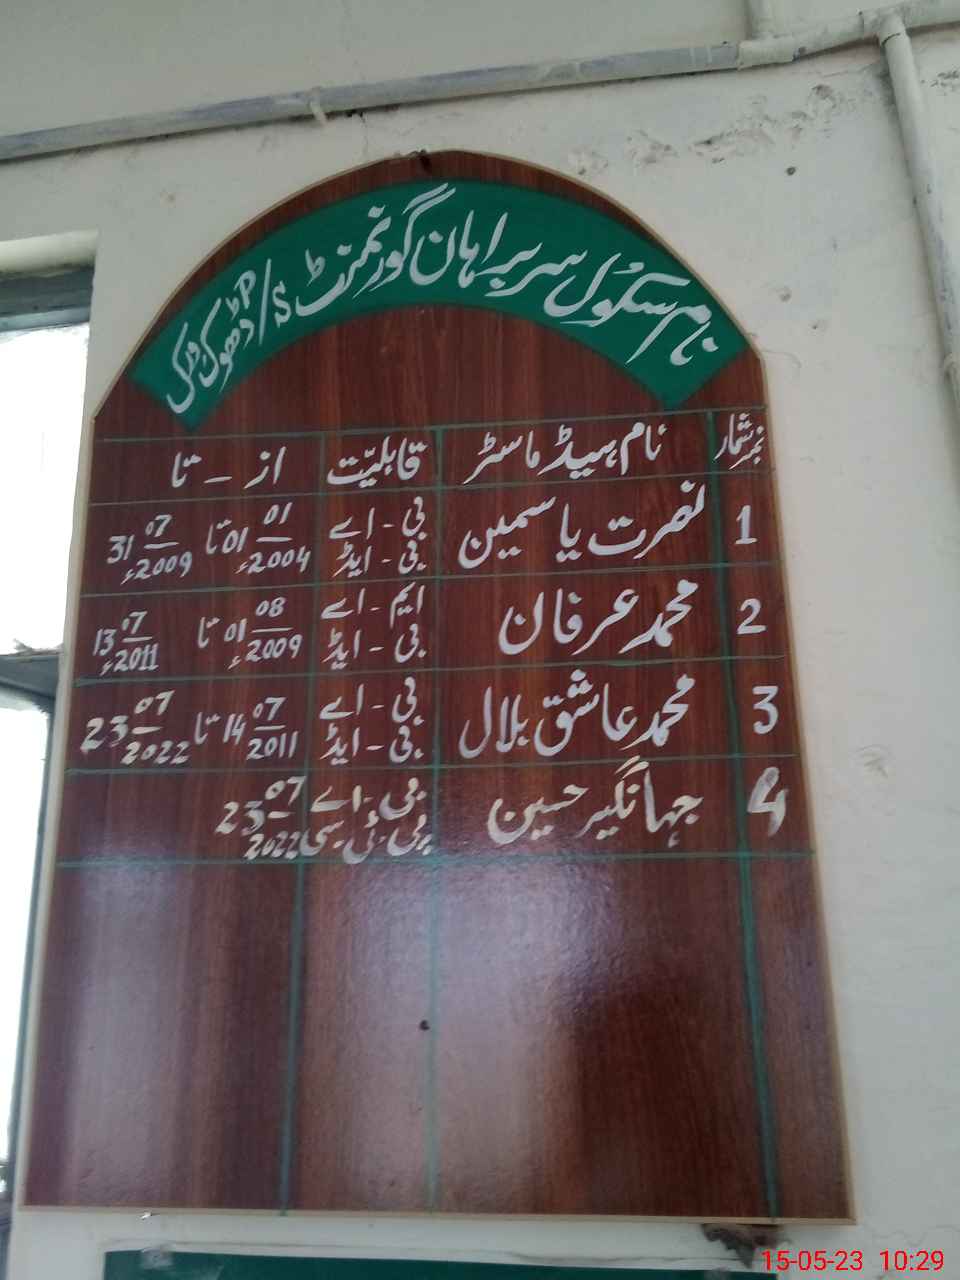 نام سکول سربراہان گورنمنٹ P/S ڈھوک
نمبر شمار نام ہیڈ ماسٹر قابلیّت از - تا
1 نصرت یاسمین بی - اے بی - ایڈ 01 01 2004ء تا 31 07 2009ء
2 محمد عرفان ایم - اے بی - ایڈ 01 08 2009ء تا 13 07 2011ء
3 محمد عاشق بلال بی - اے بی - ایڈ 14 07 2011 تا 23 07 2022
4 جہانگیر حسین بی - اے پی ٹی سی 23 07 2022
15-05-23 10:29